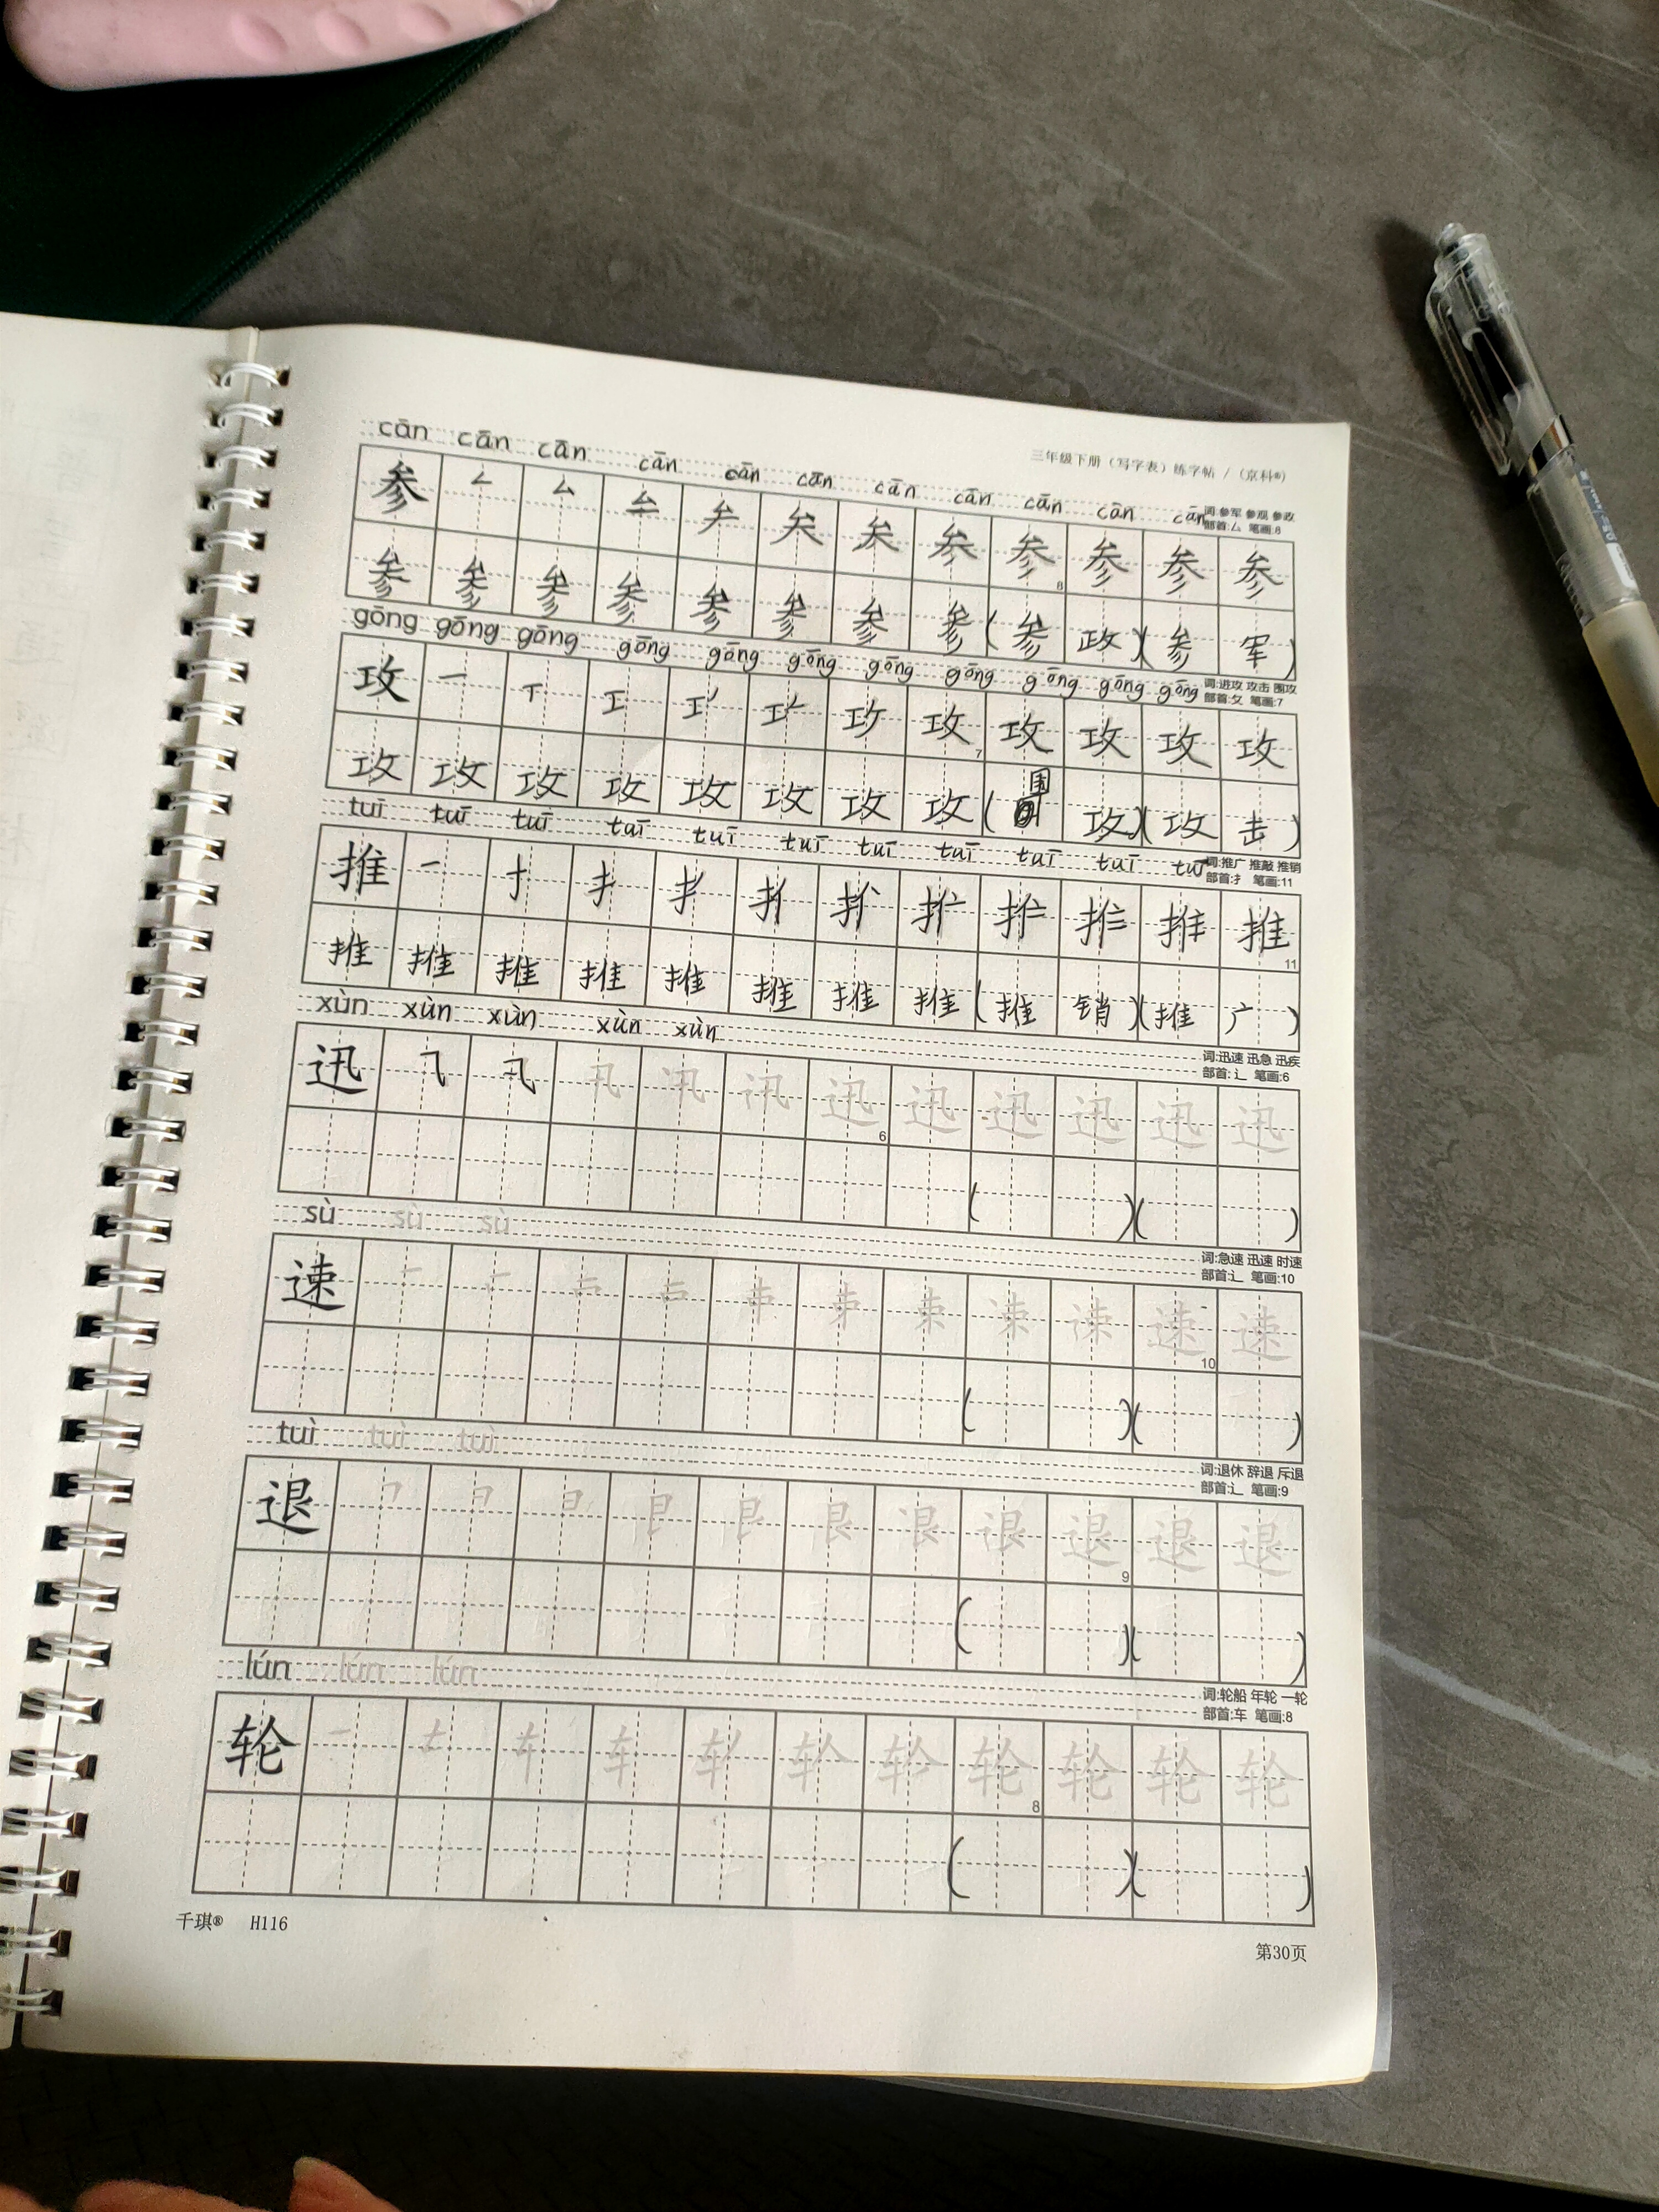 三年级下册（写字表）练字帖 / （京科®）
cān cān cān cān cān cān cān cān cān cān cān
词:参军 参观 参政
部首:厶 笔画:8
参 参 参 参 参 参
8
参 参 参 参 参 参 参 参 ( 参 政 )( 参 军 )
gōng gōng gōng gōng gōng gōng gōng gōng gōng gōng gōng
词:进攻 攻击 围攻
部首:攵 笔画:7
攻 一 丅 工 攻 攻 攻 攻 攻
7
攻 攻 攻 攻 攻 攻 攻 攻 ( 围 攻 )( 攻 击 )
tuī tuī tuī tuī tuī tuī tuī tuī tuī tuī tuī
词:推广 推敲 推销
部首:扌 笔画:11
推 一 十 扌 推
11
推 推 推 推 推 推 推 推 ( 推 销 )( 推 广 )
xùn xùn xùn xùn xùn
词:迅速 迅急 迅疾
部首:辶 笔画:6
迅 ⺄ 卂 迅 迅 迅 迅 迅 迅
6
( )( )
sù sù sù
词:急速 迅速 时速
部首:辶 笔画:10
速 一 束 速 速
10
( )( )
tuì tuì tuì
词:退休 辞退 斥退
部首:辶 笔画:9
退 艮 退 退 退
9
( )( )
lún lún lún
词:轮船 年轮 一轮
部首:车 笔画:8
轮 一 车 轮 轮 轮 轮
8
( )( )
千琪® H116
第30页